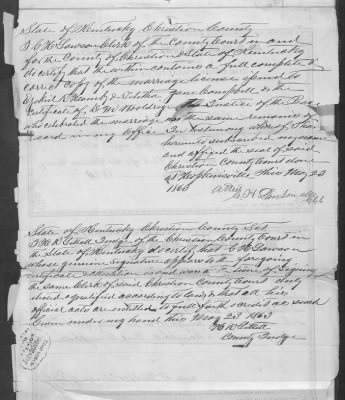 State of Kentucky Christian County
I C H Lawson Clerk of the County Court in and
for the County of Christian & State of Kentucky
do certify that the within contains a full complete &
correct copy of the marriage license issued to
Ezekiel R & Talitha Jane Campbell & the
certificate of D W Justice of the Peace
who celebrated the marriage as the same remains of
record in my office In testimony whereof I have
hereunto subscribed my name
and affixed the seal of said
Christian County Court done
at Hopkinsville this May 23
1863
Attest
State of Kentucky Christian County Set
Judge of the Christian County Court in
the State of Kentucky do certify that C H Lawson
whose genuine signature appears to the foregoing
certificate & attestation is and was at the time of signing
the same Clerk of said Christian County Court duly
elected & qualified according to law & that all his
official acts are entitled to full faith & credit as such
Given under my hand this May 23 1863
County Judge